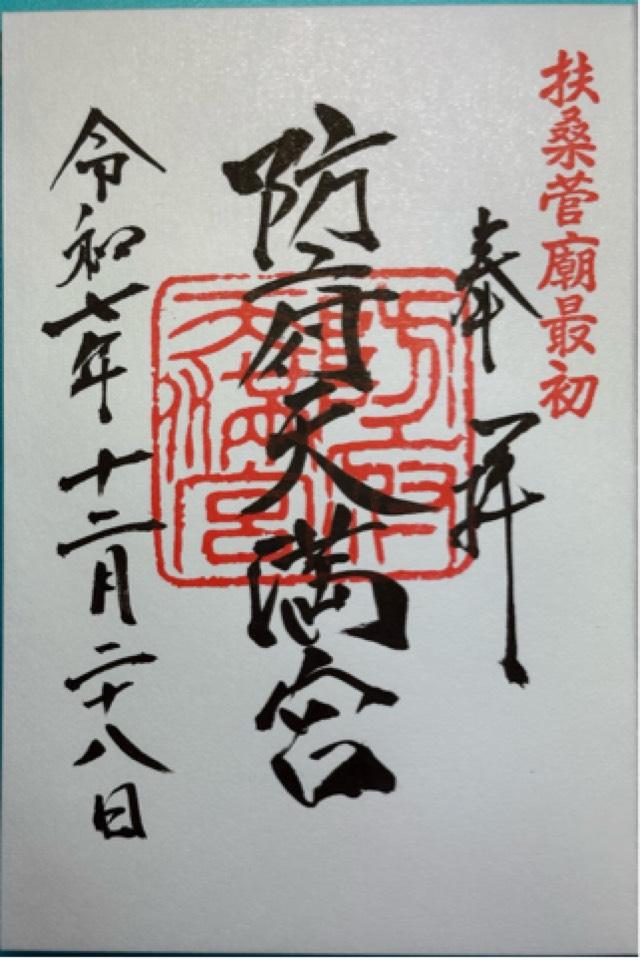 扶桑菅廟最初
奉拝
防府天満宮
防府天満宮
令和七年十二月二十八日